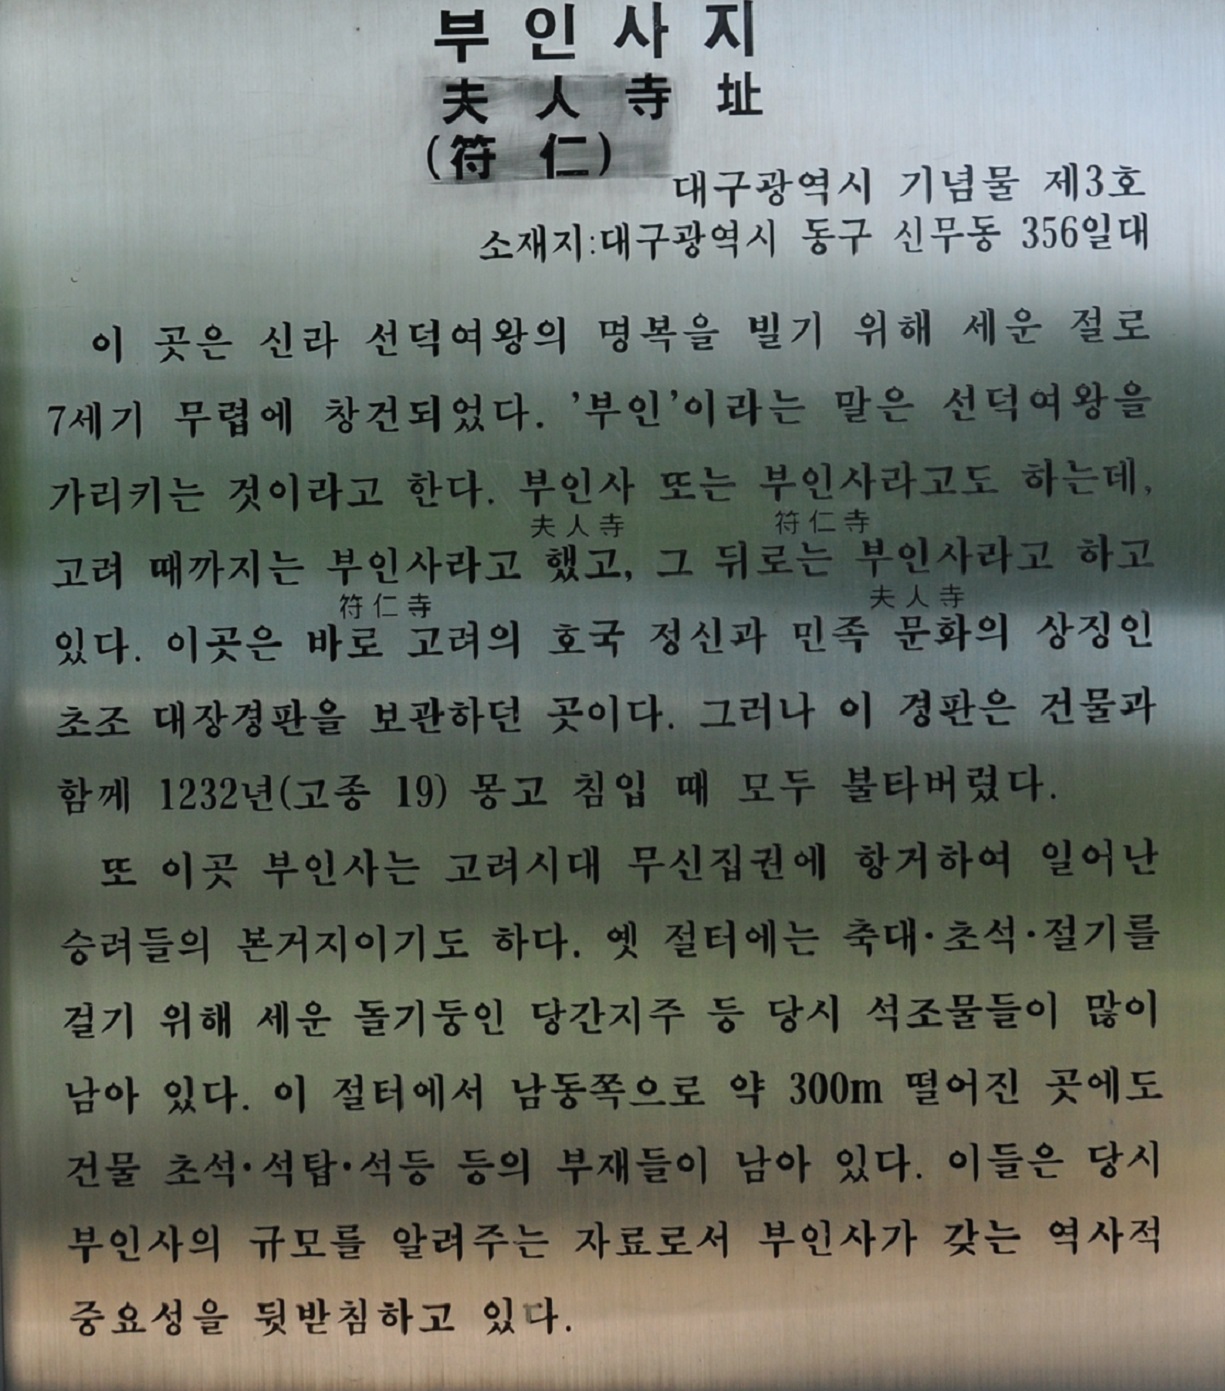 부인사지
夫人寺址
(符仁)
대구광역시 기념물 제3호
소재지:대구광역시 동구 신무동 356일대
이 곳은 신라 선덕여왕의 명복을 빌기 위해 세운 절로
7세기 무렵에 창건되었다. '부인'이라는 말은 선덕여왕을
가리키는 것이라고 한다. 부인사 또는 부인사라고도 하는데,
夫人寺 符仁寺
고려 때까지는 부인사라고 했고, 그 뒤로는 부인사라고 하고
符仁寺 夫人寺
있다. 이곳은 바로 고려의 호국 정신과 민족 문화의 상징인
초조 대장경판을 보관하던 곳이다. 그러나 이 경판은 건물과
함께 1232년(고종 19) 몽고 침입 때 모두 불타버렸다.
또 이곳 부인사는 고려시대 무신집권에 항거하여 일어난
승려들의 본거지이기도 하다. 옛 절터에는 축대·초석·절기를
걸기 위해 세운 돌기둥인 당간지주 등 당시 석조물들이 많이
남아 있다. 이 절터에서 남동쪽으로 약 300m 떨어진 곳에도
건물 초석·석탑·석등 등의 부재들이 남아 있다. 이들은 당시
부인사의 규모를 알려주는 자료로서 부인사가 갖는 역사적
중요성을 뒷받침하고 있다.